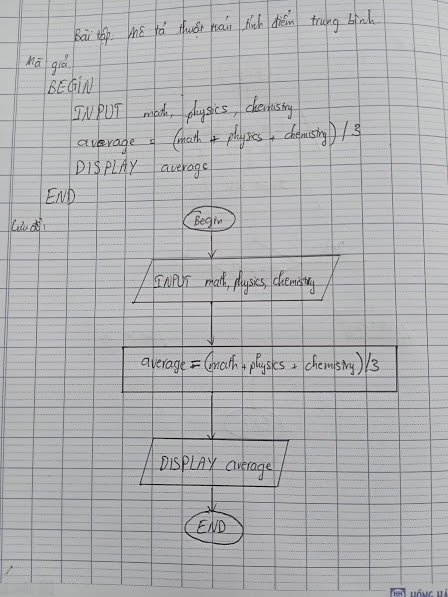 Bài tập. Mô tả thuật toán tính điểm trung bình
Mã giả
BEGIN
INPUT math, physics, chemistry
average = (math + physics + chemistry) / 3
DISPLAY average
END
Lưu đồ:
Begin
INPUT math, physics, chemistry
average = (math + physics + chemistry) / 3
DISPLAY average
END
HỒNG HÀ